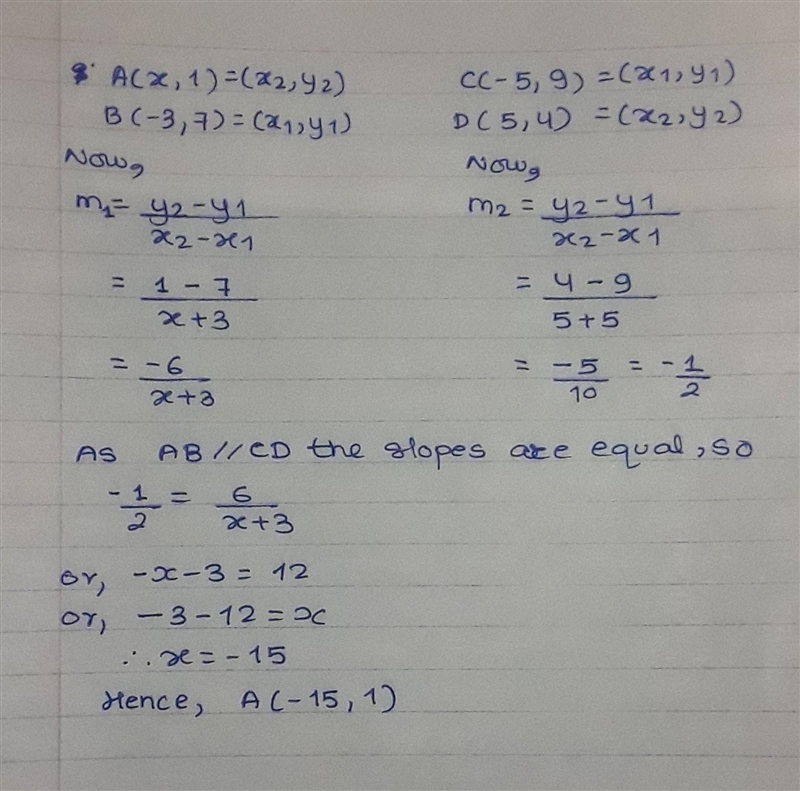 A(x, 1) = (x2, y2)
B(-3, 7) = (x1, y1)
Now,
m1 = y2 - y1 / x2 - x1
= 1 - 7 / x + 3
= -6 / x + 3
C(-5, 9) = (x1, y1)
D(5, 4) = (x2, y2)
Now,
m2 = y2 - y1 / x2 - x1
= 4 - 9 / 5 + 5
= -5 / 10 = -1 / 2
As AB // CD the slopes are equal, so
-1 / 2 = 6 / x + 3
or, -x - 3 = 12
or, -3 - 12 = x
∴ x = -15
Hence, A(-15, 1)